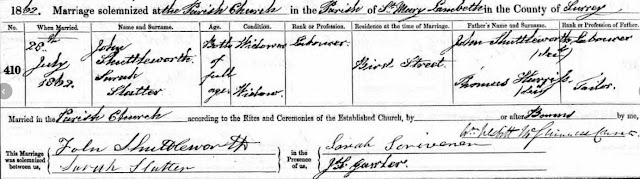 1862. Marriage solemnized at the Parish Church in the Parish of St. Mary Lambeth in the County of Surrey
When Married. Name and Surname. Age. Condition. Rank or Profession. Residence at the time of Marriage. Father's Name and Surname. Rank or Profession of Father.
410
28th July 1862
John Shuttleworth Both of full age Widower Labourer Bird Street John Shuttleworth (dec) Labourer
Sarah Slatter Widow Thomas (dec) Tailor.
Married in the Parish Church according to the Rites and Ceremonies of the Established Church, by or after Banns by me,
This Marriage was solemnized between us, John Shuttleworth Sarah Slatter in the Presence of us, Sarah Scrivener